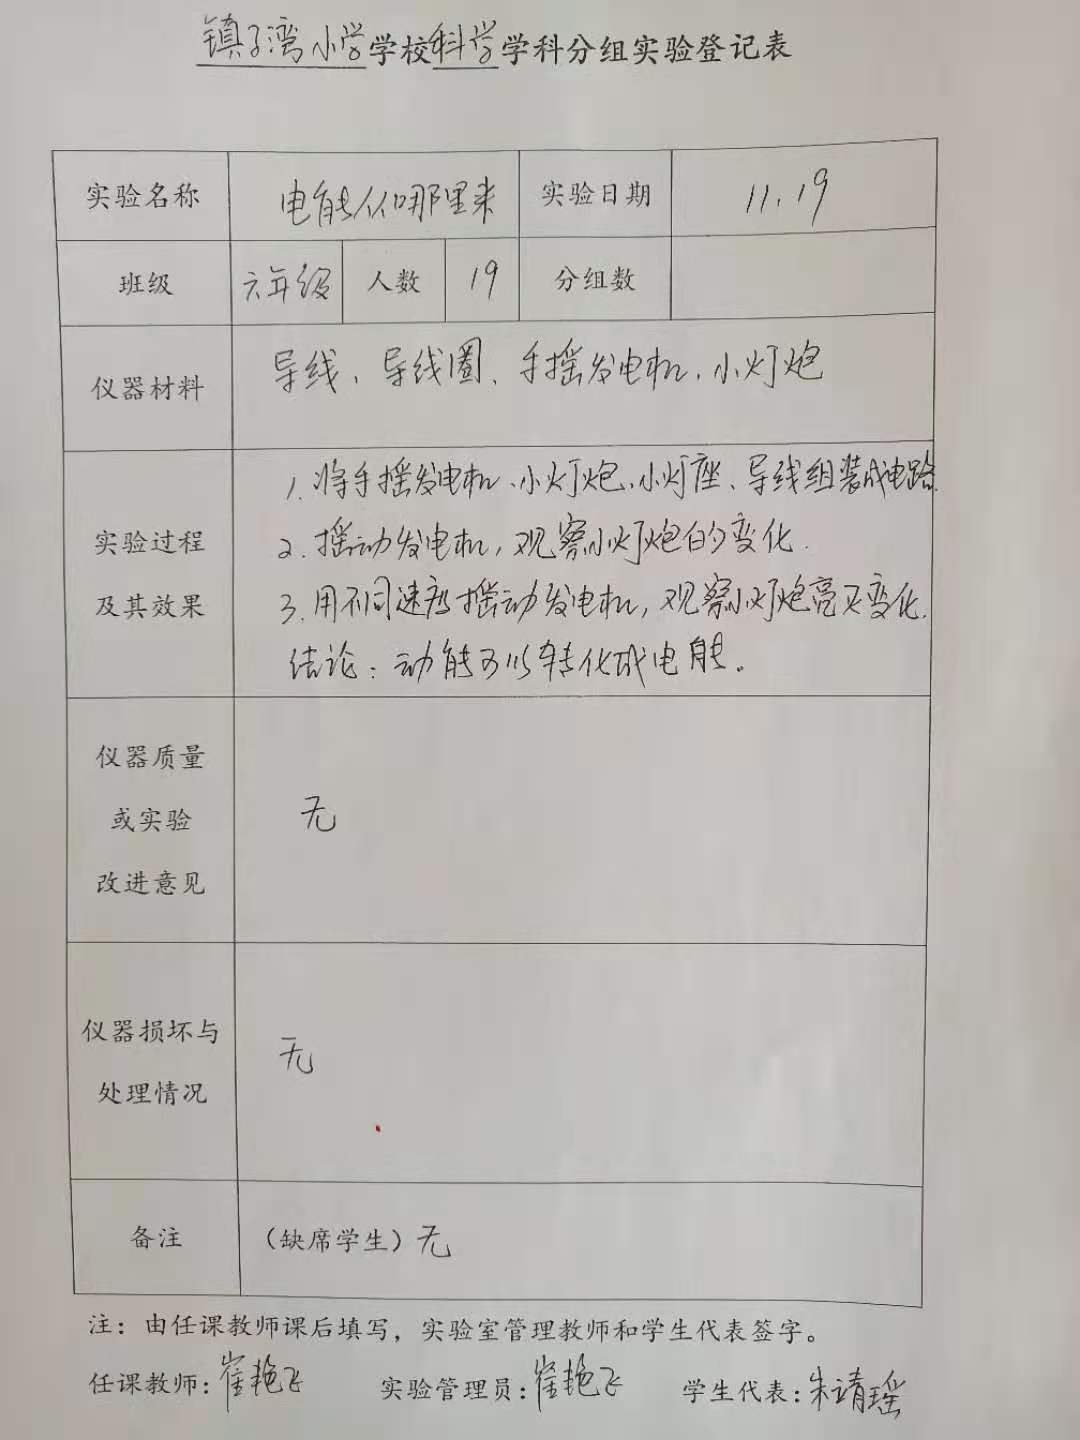 镇子湾小学学校科学学科分组实验登记表
实验名称 电能从哪里来 实验日期 11.19
班级 六年级 人数 19 分组数
仪器材料 导线、导线圈、手摇发电机、小灯炮
实验过程
及其效果
1. 将手摇发电机、小灯炮、小灯座、导线组装成电路.
2. 摇动发电机,观察小灯炮的变化.
3. 用不同速度摇动发电机,观察小灯炮亮灭变化.
结论:动能可以转化成电能。
仪器质量
或实验
改进意见
无
仪器损坏与
处理情况
无
备注 (缺席学生)无
注:由任课教师课后填写,实验室管理教师和学生代表签字。
任课教师:崔艳飞 实验管理员:崔艳飞 学生代表:朱靖瑶